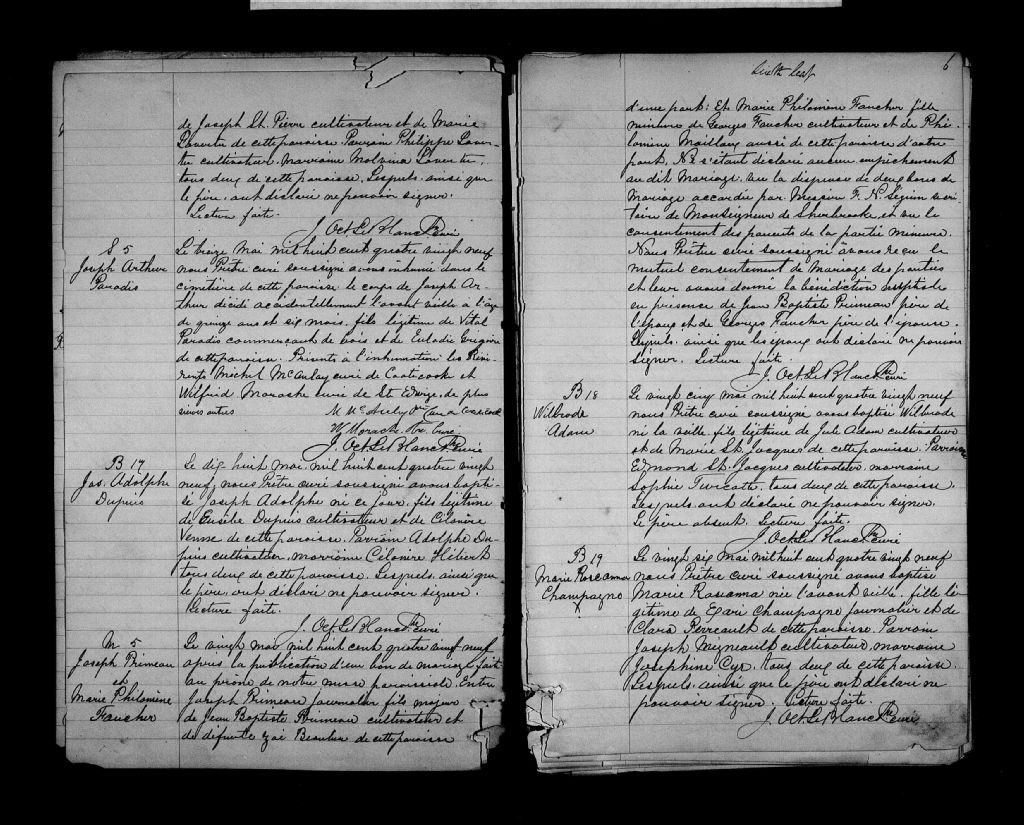 de Joseph St. Pierre cultivateur et de Marie
Lavertu de cette paroisse Parrain Philippe Laver-
tu cultivateur, marraine Malvina Lavertu,
tous deux de cette paroisse. Lesquels, ainsi que
le père, ont déclaré ne pouvoir signer.
Lecture faite.
J. Oct. Le Blanc Ptre curé
S 5
Joseph Arthur
Paradis
Le treize Mai mil huit cent quatre vingt neuf
nous Prêtre curé soussigné avons inhumé dans le
cimetière de cette paroisse le corps de Joseph Ar-
thur décédé accidentellement l'avant veille à l'age
de quinze ans et six mois, fils légitime de Vital
Paradis commerçant de bois et de Eulodie Grégoire
de cette paroisse. Présents à l'inhumation les Révé-
rends Michel McAulay curé de Coaticook et
Wilfrid Morache curé de St Edwige, de plus
autres
M McAuley Ptre Curé Coaticook
W. Morache Ptre Curé
J. Oct. Le Blanc Ptre curé
B 17
Jos. Adolphe
Dupuis
Le dix huit mai, mil huit cent quatre vingt
neuf, nous Prêtre curé soussigné avons bapti-
sé Joseph Adolphe né ce jour, fils légitime
de Eusèbe Dupuis cultivateur et de Célanire
Venne de cette paroisse. Parrain Adolphe Du-
puis cultivateur, marraine Célanire Hébert
tous deux de cette paroisse. Lesquels, ainsi que
le père, ont déclaré ne pouvoir signer.
Lecture faite.
J. Oct. Le Blanc Ptre curé
M 5
Joseph Primeau
et
Marie Philomène
Faucher
Le vingt mai mil huit cent quatre vingt neuf
après la publication d'un ban de mariage fait
au prône de notre messe paroissiale. Entre
Joseph Primeau journalier fils majeur
de Jean Baptiste Primeau cultivateur et
de défunte Zoé Beaulieu de cette paroisse
Sixth leaf
6
d'une part: Et Marie Philomène Faucher fille
mineure de Georges Faucher cultivateur et de Phi-
lomène Mailloux aussi de cette paroisse d'autre
part. Ne s'étant déclaré aucun empêchement
au dit Mariage. vu la dispense de deux bans de
Mariage accordée par Messire F. N. Séguin secré-
taire de Monseigneur de Sherbrooke, et vu le
consentement des parents de la partie mineure.
Nous Prêtre curé soussigné avons reçu le
mutuel consentement de Mariage des parties
et leur avons donné la bénédiction nuptiale
en présence de Jean Baptiste Primeau père de
l'époux et de Georges Faucher père de l'épouse.
Lesquels, ainsi que les époux ont déclaré ne pouvoir
signer. Lecture faite.
J. Oct. Le Blanc Ptre curé
B 18
Wilbrode
Adam
Le vingt cinq Mai mil huit cent quatre vingt neuf
nous Prêtre curé soussigné avons baptisé Wilbrode
né la veille, fils légitime de Jule Adam cultivateur
et de Marie St. Jacques de cette paroisse. Parrain
Edmond St. Jacques cultivateur, marraine
Sophie Turcotte, tous deux de cette paroisse.
Lesquels ont déclaré ne pouvoir signer.
Le père absent. Lecture faite.
J. Oct. Le Blanc Ptre curé
B 19
Marie Roseanna
Champagne
Le vingt six Mai mil huit cent quatre vingt neuf
nous Prêtre curé soussigné avons baptisé
Marie Rosanna née l'avant veille, fille lé-
gitime de Ezari Champagne journalier et de
Clara Perreault de cette paroisse. Parrain
Joseph Migneault cultivateur, marraine
Josephine Cyr. tous deux de cette paroisse.
Lesquels ainsi que le père ont déclaré ne
pouvoir signer. Lecture faite.
J. Oct. Le Blanc Ptre curé